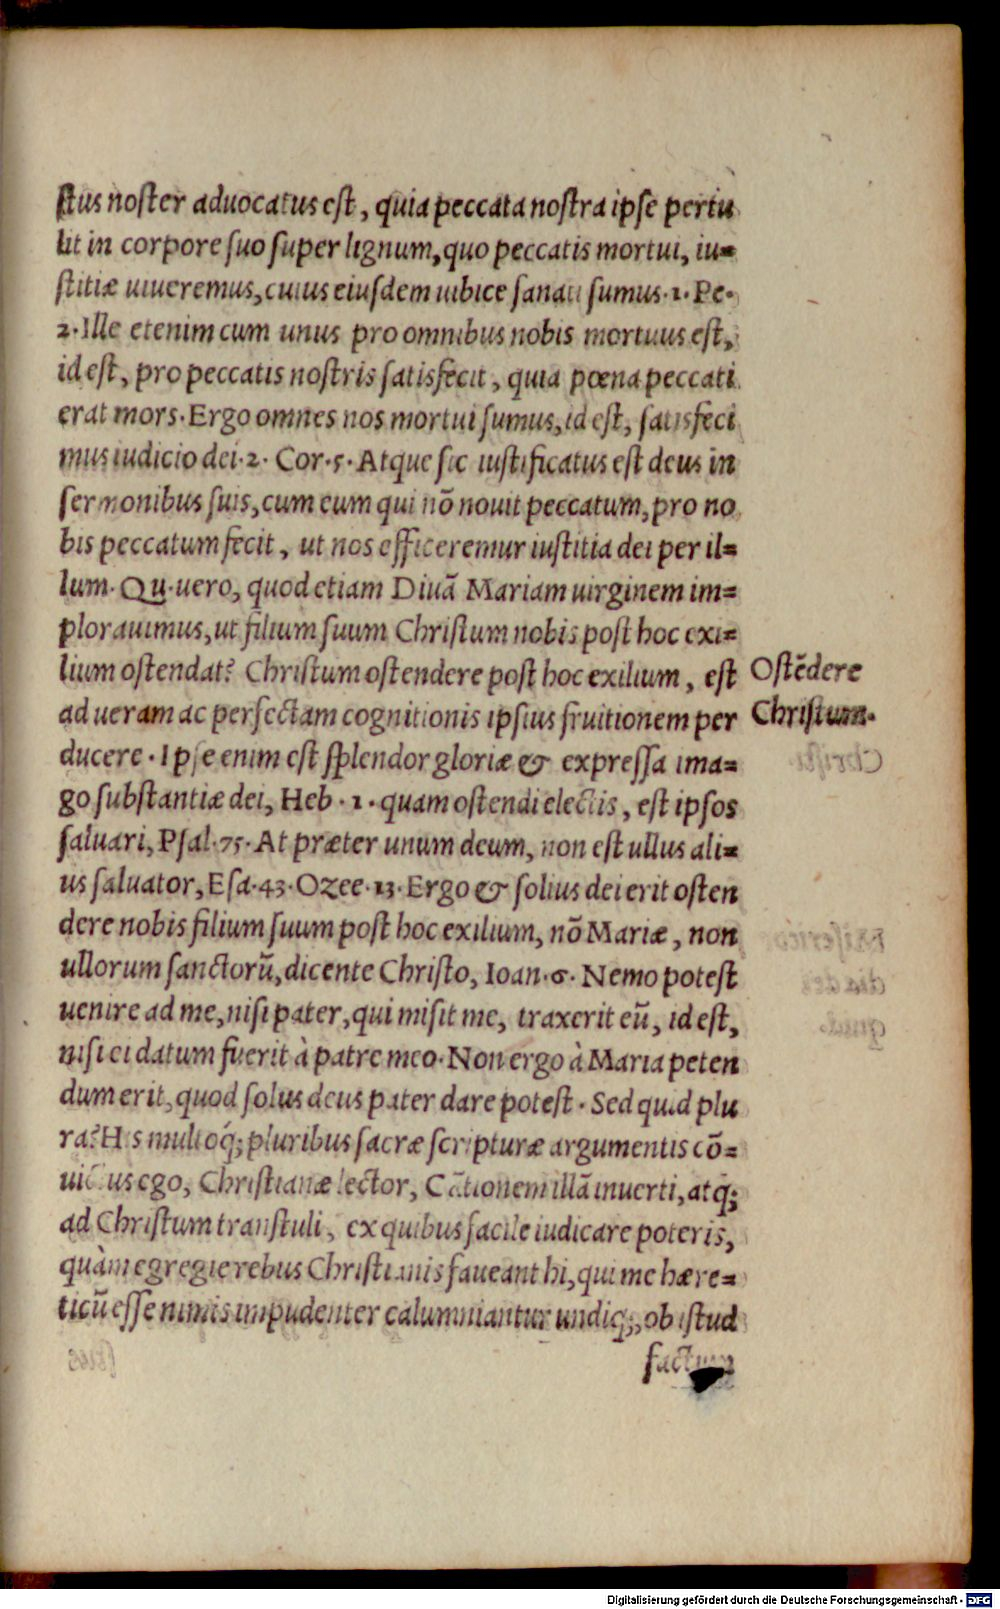 ſtus noſter aduocatus eſt, quia peccata noſtra ipſe pertu
lit in corpore ſuo ſuper lignum, quo peccatis mortui, iu=
ſtitiæ uiueremus, cuius eiuſdem uibice ſanati ſumus. 1. Pe.
2. Ille etenim cum unus pro omnibus nobis mortuus eſt,
id eſt, pro peccatis noſtris ſatisfecit, quia pœna peccati
erat mors. Ergo omnes nos mortui ſumus, id eſt, ſatisfeci
mus iudicio dei. 2. Cor. 5. Atque ſic iuſtificatus eſt deus in
ſermonibus ſuis, cum eum qui nõ nouit peccatum, pro no
bis peccatum fecit, ut nos efficeremur iuſtitia dei per il=
lum. Qu. uero, quod etiam Diuã Mariam uirginem im=
plorauimus, ut filium ſuum Chriſtum nobis poſt hoc exi=
lium oſtendat? Chriſtum oſtendere poſt hoc exilium, eſt
ad ueram ac perfectam cognitionis ipſius fruitionem per
ducere. Ipſe enim eſt ſplendor gloriæ & expreſſa ima=
go ſubſtantiæ dei, Heb. 1. quam oſtendi electis, eſt ipſos
ſaluari, Pſal. 75. At præter unum deum, non eſt ullus ali=
us ſaluator, Eſa. 43. Ozee. 13. Ergo & ſolius dei erit oſten
dere nobis filium ſuum poſt hoc exilium, nõ Mariæ, non
ullorum ſanctorũ, dicente Chriſto, Ioan. 6. Nemo poteſt
uenire ad me, niſi pater, qui miſit me, traxerit eũ, id eſt,
niſi ei datum fuerit à patre meo. Non ergo à Maria peten
dum erit, quod ſolus deus pater dare poteſt. Sed quid plu
ra? His multoq́; pluribus ſacræ ſcripturæ argumentis cõ=
uictus ego, Chriſtianæ lector, Cãtionem illã inuerti, atq́;
ad Chriſtum tranſtuli, ex quibus facile iudicare poteris,
quàm egregie rebus Chriſtianis faueant hi, qui me hære=
ticũ eſſe nimis impudenter calumniantur undiq;, ob iſtud
factum
Oſtẽdere
Chriſtum.
Digitalisierung gefördert durch die Deutsche Forschungsgemeinschaft - DFG